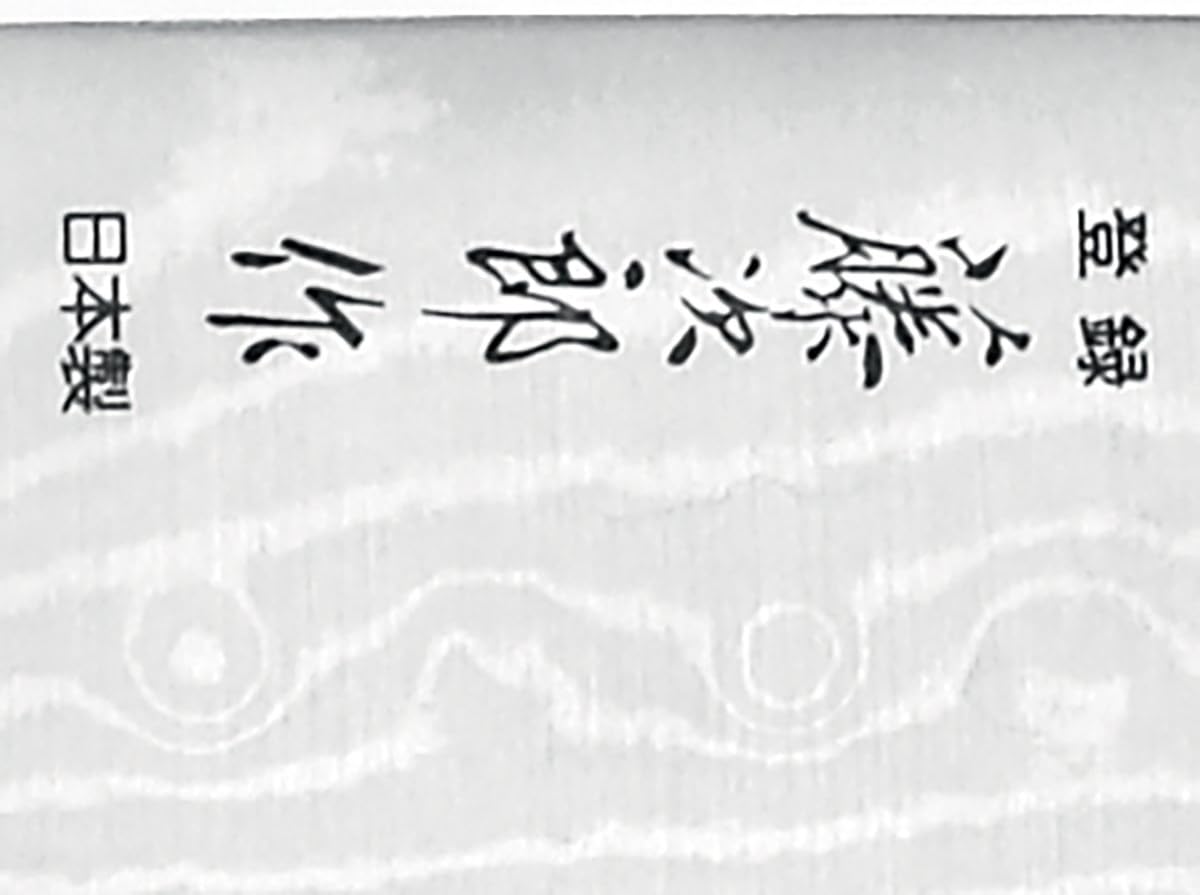 登録
藤次郎作
日本製